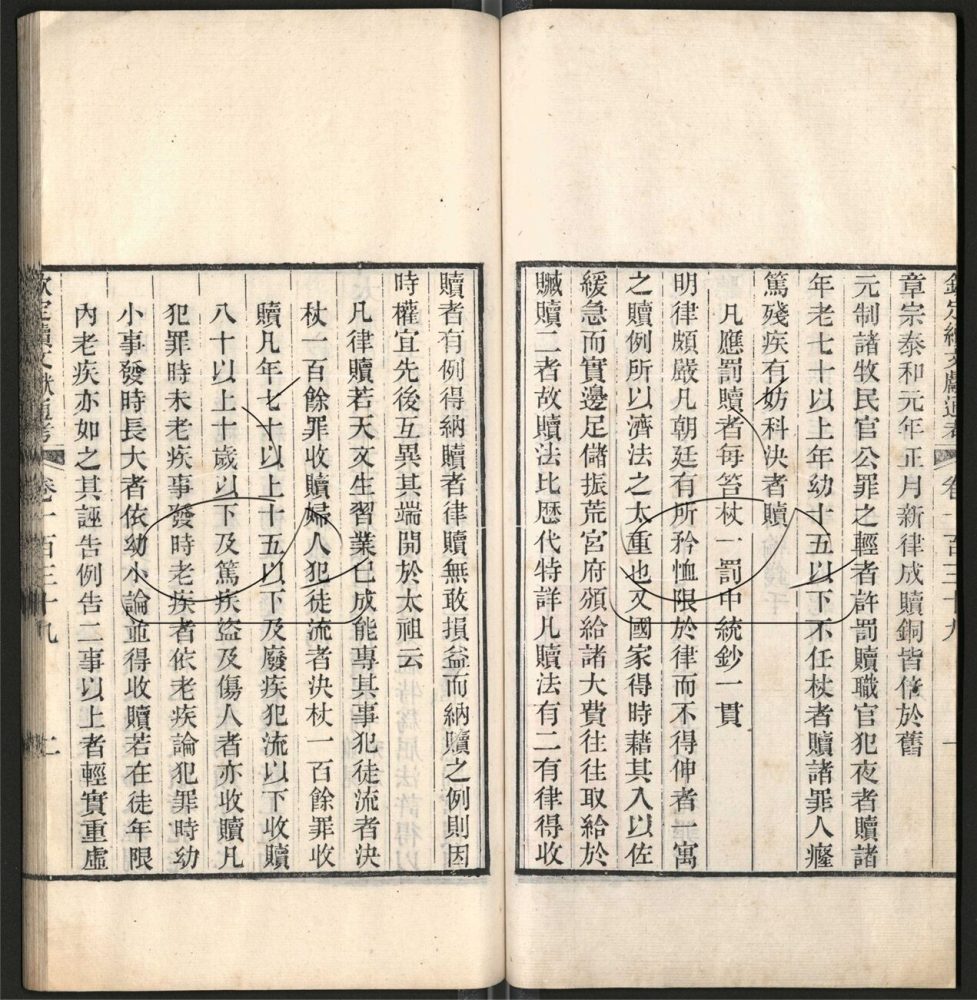 欽定續文獻通考 卷一百三十九
章宗泰和元年正月新律成贖銅皆倍於舊
元制諸牧民官公罪之輕者許罰贖職官犯夜者贖諸
年老七十以上年幼十五以下不任杖者贖諸罪人癃
篤殘疾有妨科決者贖
凡應罰贖者每笞杖一罰中統鈔一貫
明律頗嚴凡朝廷有所矜恤限於律而不得伸者一寓
之贖例所以濟法之太重也又國家得時藉其入以佐
緩急而實邊足儲振荒宮府頒給諸大費往往取給於
贓贖二者故贖法比歷代特詳凡贖法有二有律得收
贖者有例得納贖者律贖無敢損益而納贖之例則因
時權宜先後互異其端開於太祖云
凡律贖若天文生習業已成能專其事犯徒流者決
杖一百餘罪收贖婦人犯徒流者決杖一百餘罪收
贖凡年七十以上十五以下及廢疾犯流以下收贖
八十以上十歲以下及篤疾盜及傷人者亦收贖凡
犯罪時未老疾事發時老疾者依老疾論犯罪時幼
小事發時長大者依幼小論並得收贖若在徒年限
內老疾亦如之其誣告例告二事以上者輕實重虛
欽定續文獻通考 卷一百三十九 二